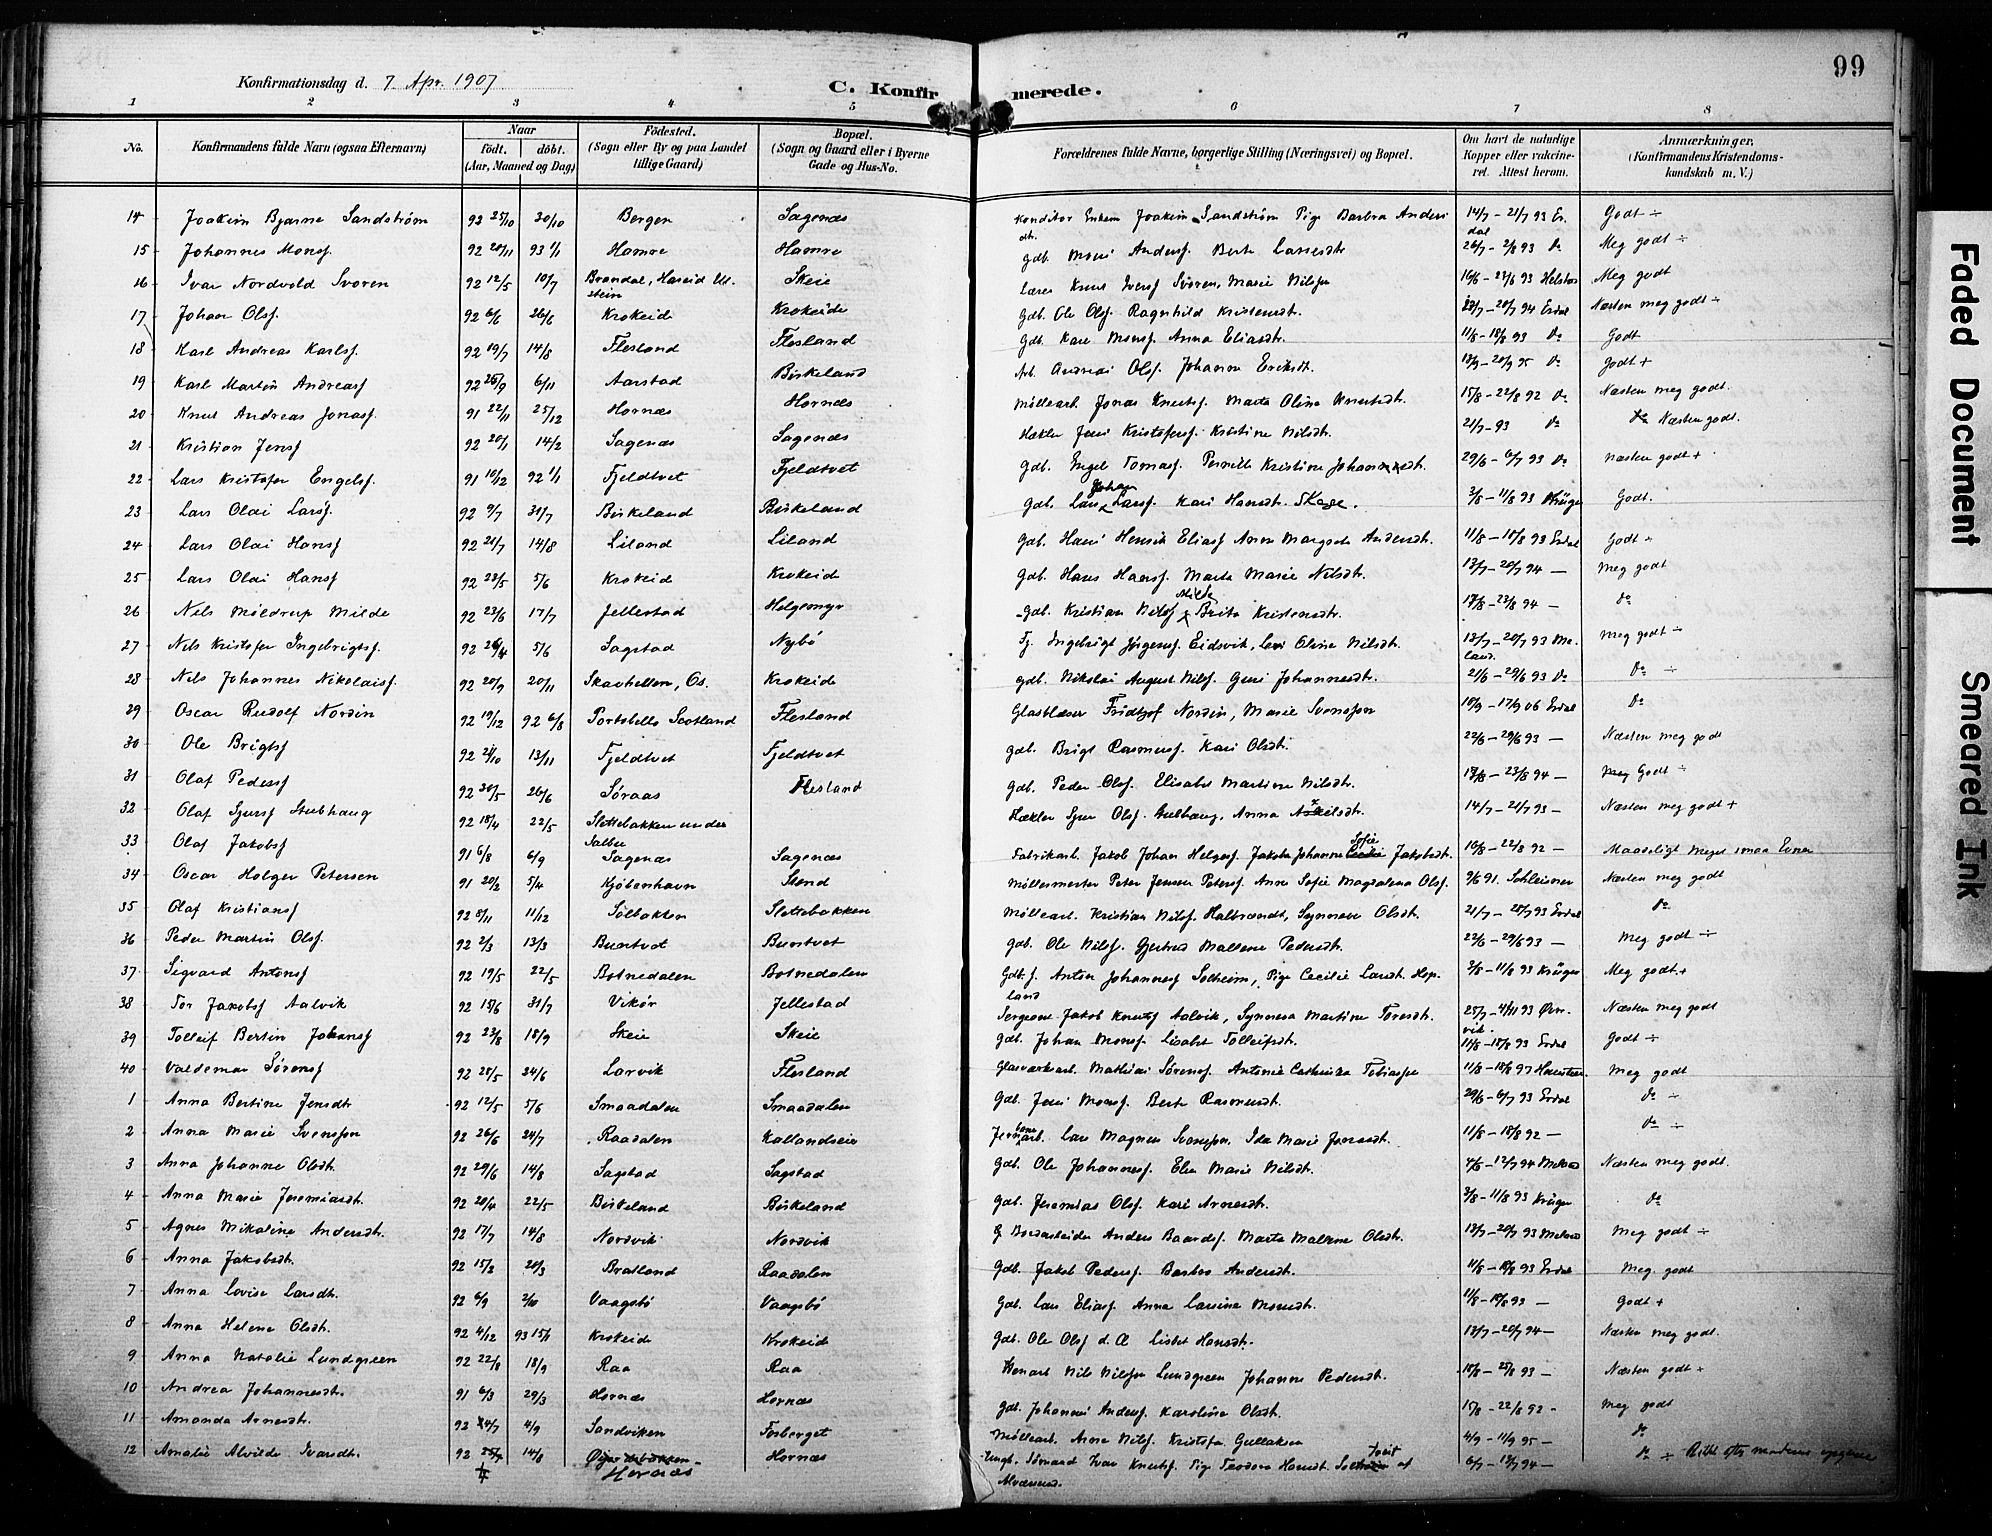 99
Konfirmationsdag d. 7. Apr. 1907
C. Konfirmerede.
1 2 3 4 5 6 7 8
No. Konfirmandens fulde Navn (ogsaa Efternavn) Naar født. døbt. (Aar, Maaned og Dag) Födested. (Sogn eller By og paa Landet tillige Gaard) Bopæl. (Sogn og Gaard eller i Byerne Gade og Hus-No. Forældrenes fulde Navne, borgerlige Stilling (Næringsvei) og Bopæl. Om havt de naturlige Kopper eller vakcineret. Attest herom. Anmærkninger. (Konfirmandens Kristendomskundskab m. V.)
14 Joakim Bjarne Sandström 92 25/10 30/10 Bergen Sagenæs Konditor Enkem Joakim Sandström Pige Barbra Andersdtr. 14/7 - 21/7 93 Erdal Godt ÷
15 Johannes Monsf. 92 20/11 93 1/1 Hamre Hamre Gdb. Mons Andersf. Berte Larsesdtr 26/7 - 2/8 93 Do Meg godt ÷
16 Ivar Nordvold Svoren 92 12/5 10/7 Brandal, Hareid Ulstein Skeie Lærer Knut Iversf Svoren, Marie Nilsen 16/6 - 23/6 93 Meg godt
17 Johan Olsf. 92 6/6 26/6 Krokeide Krokeide Gdb. Ole Olsf. Ragnhild Kristensdtr. 20/7 94 Erdal Næsten meg godt ÷
18 Karl Andreas Karlsf. 92 19/7 14/8 Flesland Flesland Gdb. Karl Monsf. Anna Eliasdtr. 11/8 - 18/8 93 Do Godt
19 Karl Martin Andreasf 92 25/9 6/11 Aarstad Birkeland Arb. Andreas Olsf. Johanna Eriksdtr. 13/9 - 20/9 95 Do Godt +
20 Knut Andreas Jonasf. 91 22/11 25/12 Hornæs Hornæs Möllearb. Jonas Knutsf. Marta Oline Knutsdtr. 15/8 - 22/8 92 Do Næsten meg godt.
21 Kristian Jensf 92 20/1 14/2 Sagenæs Sagenæs Hækler Jens Kristofersf. Kristine Nilsdtr. 21/7 - 93 Do Næsten godt.
22 Lars Kristofer Engelsf. 91 10/12 92 1/1 Fjeldtvet Fjeldtvet Gdb. Engel Tomasf. Pernille Kristine Johannesdtr. 29/6 - 6/7 93 Do Næsten godt +
23 Lars Olai Larsf. 92 9/7 31/7 Birkeland Birkeland Gdb. Lars Johan Larsf. Kari Hansdtr. Skage. 3/8 - 11/8 93 Krüger Godt.
24 Lars Olai Hansf 92 21/7 14/8 Liland Liland Gdb. Hans Henrik Eliasf Anna Margreta Andersdtr. 11/8 - 18/8 93 Erdal Godt ÷
25 Lars Olai Hansf 92 23/5 5/6 Krokeid Krokeid Gdb. Hans Hansf. Marta Marie Nilsdtr. 13/7 - 20/7 94 — Meg godt
26 Nils Möldrup Milde 92 23/6 17/7 Jellestad Helgemyr Gdb. Kristian Nilsf Milde Brita Kristensdtr. 23/8 94 — Do
27 Nils Kristofer Ingebrigtsf. 92 26/4 5/6 Sagstad Nybö Tj. Ingebrigt Jörgensf. Eidsvik, Oline Nilsdtr. 13/7 - 20/7 93 Meland. Meg godt ÷
28 Nils Johannes Nikolaisf. 92 20/9 20/11 Skavhellen, Os. Krokeid Gdb. Nikolai August Nilsf. Guri Johannesdtr. 21/6 - 29/6 93 Do Do ÷
29 Oscar Rudolf Nordin 92 19/12 92 6/8 Portobello Scotland Flesland Glasblæser Fridtjof Nordin, Marie Svensson 10/9 - 17/9 06 Erdal Do
30 Ole Brigtsf 92 21/10 13/11 Fjeldtvet Fjeldtvet Gdb. Brigt Rasmusf. Kari Olsdtr. 22/6 - 29/6 93 — Næsten meg godt
31 Olaf Pedersf 92 30/5 26/6 Söraas Flesland Gdb. Peder Olsf. Elisabet Martine Nilsdtr. 23/8 94 — Meg Godt ÷
32 Olaf Sjursf Stubhaug 92 18/4 22/5 Slettebakken under Salbu Hækler Sjur Olsf. Anna Askeilsdtr. 14/7 - 21/7 93 — Næsten meg godt +
33 Olaf Jakobsf 91 6/8 6/9 Sagenæs Sagenæs Fabrikarb. Jakob Johan Helgesf. Jakoba Johanne Sofie Jakobsdtr. 16/8 - 22/8 92 — Maadeligt meget smaa Evner
34 Oscar Holger Petersen 91 20/2 5/4 Kjöbenhavn Stend Möllermester Peter Jensen Petersf. Anne Sofie Magdalena Olsf. 9/6 91. Schleisner Næsten meg godt
35 Olaf Kristiansf 92 8/11 11/12 Solbakken Slettebakken Möllearb. Kristian Nilsf. Halbrændt, Synneve Olsdtr. 21/7 - 28/7 93 Erdal Do
36 Peder Martin Olsf. 92 2/3 13/3 Buntvet Buntvet Gdb. Ole Nilsf. Gjertrud Mallene Pedersdtr. 22/6 - 29/6 93 — Meg godt ÷
37 Sigvard Antonsf 92 19/5 22/5 Botnedalen Botnedalen Gdb. f. Anton Johannesf Solheim, Pige Cecilie Larsdtr. Hopland 3/8 - 11/8 93 Krüger Meg godt +
38 Tor Jakobsf Aalvik 92 15/6 31/7 Vikör Jellestad Sergeant Jakob Knutsf Aalvik, Synneva Martine Toresdtr. 4/11 93 Næsten meg godt
39 Tolleif Bertin Johansf 92 23/8 18/9 Skeie Skeie Gdb. Johan Monsf. Lisabet Tolleifsdtr. 11/8 - 18/8 93 Erdal Godt ÷
40 Valdemar Sörensf 92 28/5 24/6 Larvik Flesland Glasværksarb. Mathias Sörensf. Antonie Cathrinka Tobiasen 11/8 - 18/8 97 Meg godt
1 Anna Bertine Jensdtr 92 12/5 5/6 Smaadalen Smaadalen Gdb. Jens Monsf. Berte Rasmusdtr. 29/6 - 6/7 93 Erdal Do ÷
2 Anna Marie Svensson 92 26/6 24/7 Raadalen Kallandseie Jernbanearb. Lars Magnus Svensson, Ida Marie Jonasdtr. 11/8 - 18/8 92 — Do ÷
3 Anna Johanne Olsdtr. 92 29/6 14/8 Sagstad Sagstad Gdb. Ole Johannesf. Elen Marie Nilsdtr. 12/7 94 Meland Næsten meg godt.
4 Anna Marie Jeremiasdtr. 92 20/4 22/5 Birkeland Birkeland Gdb. Jeremias Olsf. Kari Arnesdtr. 3/8 - 11/8 93 Krüger Do
5 Agnes Mikaline Andersdtr. 92 17/7 14/8 Nordvik Nordvik Anders Baardsf. Marta Malene Olsdtr. 13/7 - 20/7 93 Meland Meg godt ÷
6 Anna Jakobsdtr. 92 15/2 20/3 Bratland Raadalen Gdb. Jakob Pedersf. Barbro Andersdtr. 11/8 - 18/8 93 Erdal Meg. godt
7 Anna Lovise Larsdtr. 92 6/9 2/10 Vaagsbö Vaagsbö Gdb. Lars Eliasf. Anna Larsine Monsdtr. 11/8 - 18/8 93 — Godt +
8 Anna Helene Olsdtr. 92 4/12 93 15/1 Krokeid Krokeid Gdb. Ole Olsf d. Æ Lisbet Hansdtr. 13/7 - 20/7 94 — Næsten meg godt.
9 Anna Natalie Lundgreen 92 22/8 18/9 Raa Raa Nils Nilsson Lundgreen Johanne Pedersdtr. 18/8 - 25/8 93 — Næsten godt +
10 Andrea Johannesdtr. 91 6/3 29/3 Hornæs Hornæs Gdb. Johannes Andersf. Karoline Olsdtr. 15/8 - 22/8 92 - Meg godt
11 Amanda Arnesdtr. 92 4/7 4/9 Sandviken Fosberget Möllearb. Arne Nilsf. Kristofa Gullaksen 4/9 - 11/9 95 — Do
12 Amalie Alvilde Ivarsdtr. 92 14/8 Hornæs Hornæs Ungk. Edvard Ivar Knutsf. Pige Teodora Hansdtr. Tveit af Alversund. 6/7 - 13/7 94 — Do ÷ efter moderens opgave
Faded Document
Smeared Ink